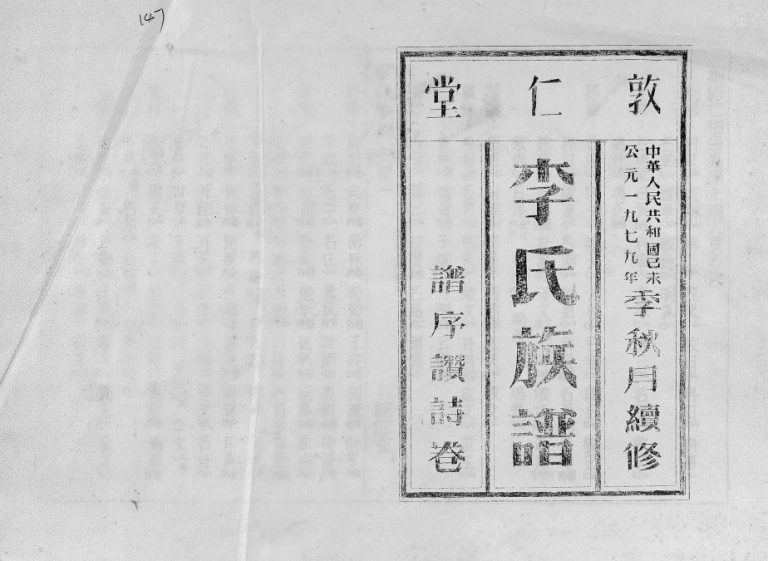 147
敦仁堂
中華人民共和國己未
公元一九七九年
季秋月續修
李氏族譜
譜序讚詩卷